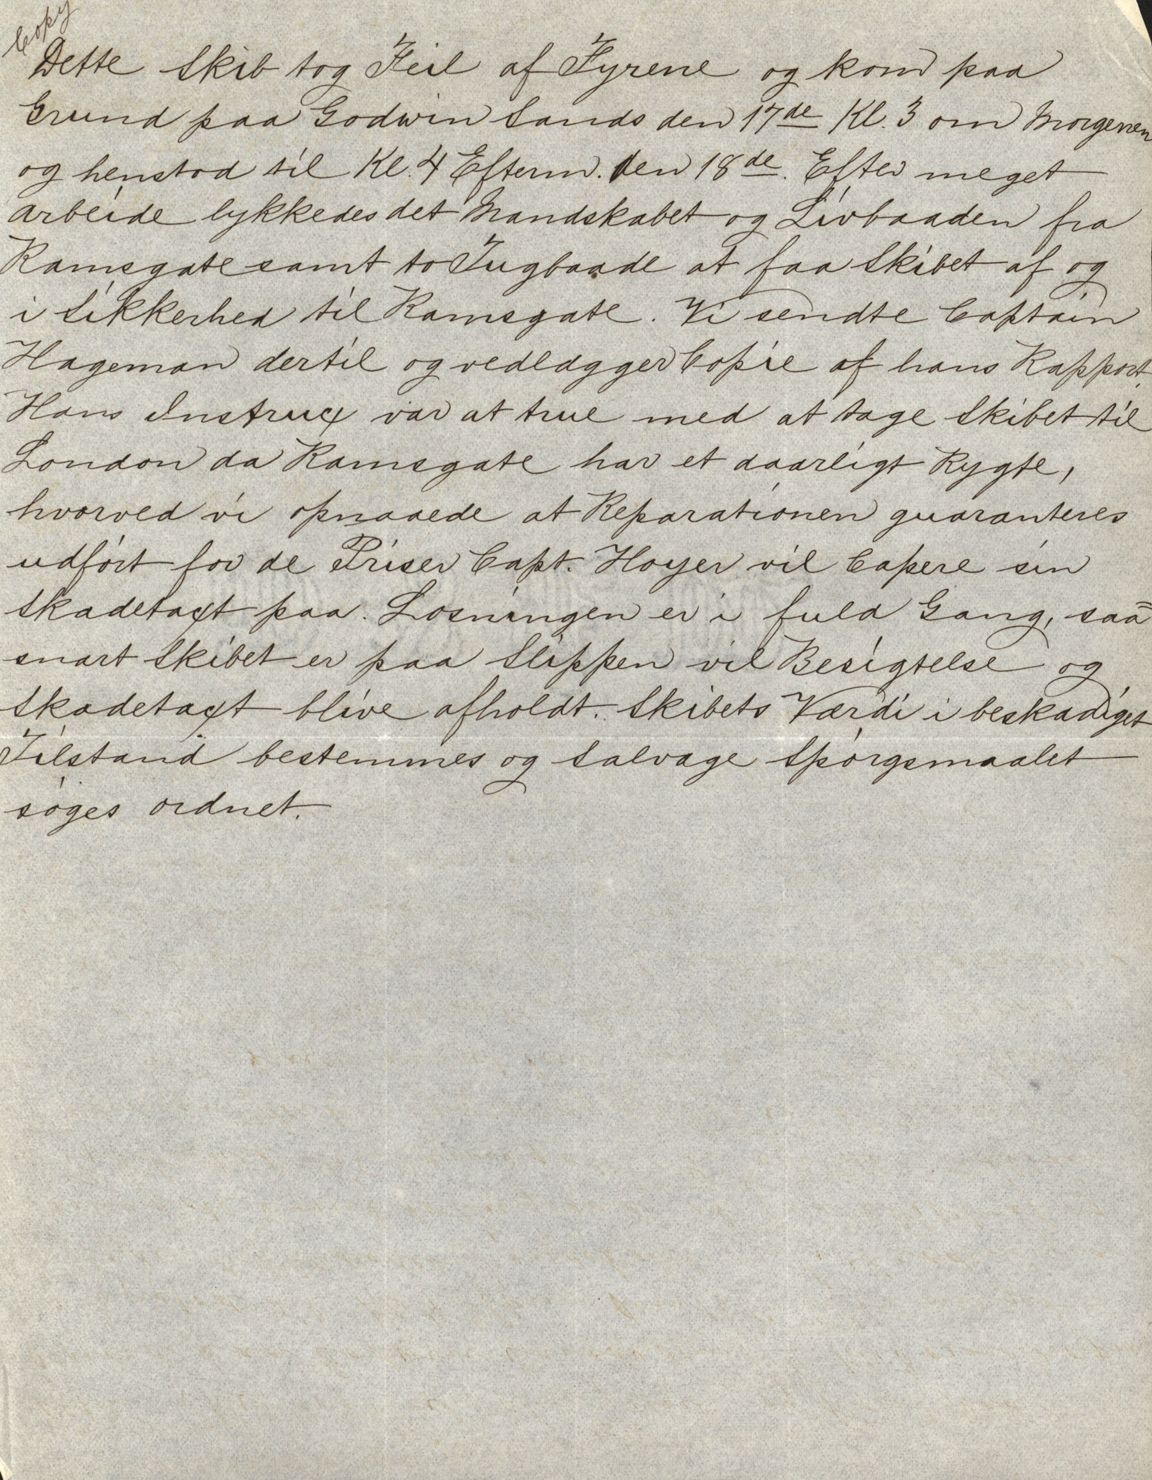 Copy
Dette Skib tog Feil af Fyrene og kom paa
Grund paa Godwin Sands den 17de Kl. 3 om Morgenen
og henstod til Kl. 4 Efterm. den 18de. Efter meget
arbeide lykkedes det Mandskabet og Livbaaden fra
Ramsgate samt to Tugbaade at faa Skibet af og
i Sikkerhed til Ramsgate. Vi sendte Captain
Hageman dertil og vedlægger Copie af hans Rapport.
Hans Instrux var at true med at tage Skibet til
London da Ramsgate har et daarligt Rygte,
hvorved vi opnaaede at Reparationen guaranteres
udført for de Priser Capt. Hoyer vil Capere sin
Skadetaxt paa. Losningen er i fuld Gang, saa
snart Skibet er paa Slippen vil Besigtelse og
Skadetaxt blive afholdt. Skibets Værdi i beskadiget
Tilstand bestemmes og Salvage Spørgsmaalet
søges ordnet.